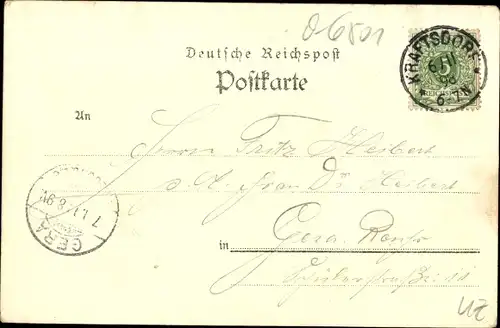 06801
Deutsche Reichspost
Postkarte
KRAFTSDORF
5
6-7N
An
Herrn Fritz Heibert
p. A. Frau Dr Heibert
GERA
7
8-9V
in Gera. Reuß
Schülerstraße 11